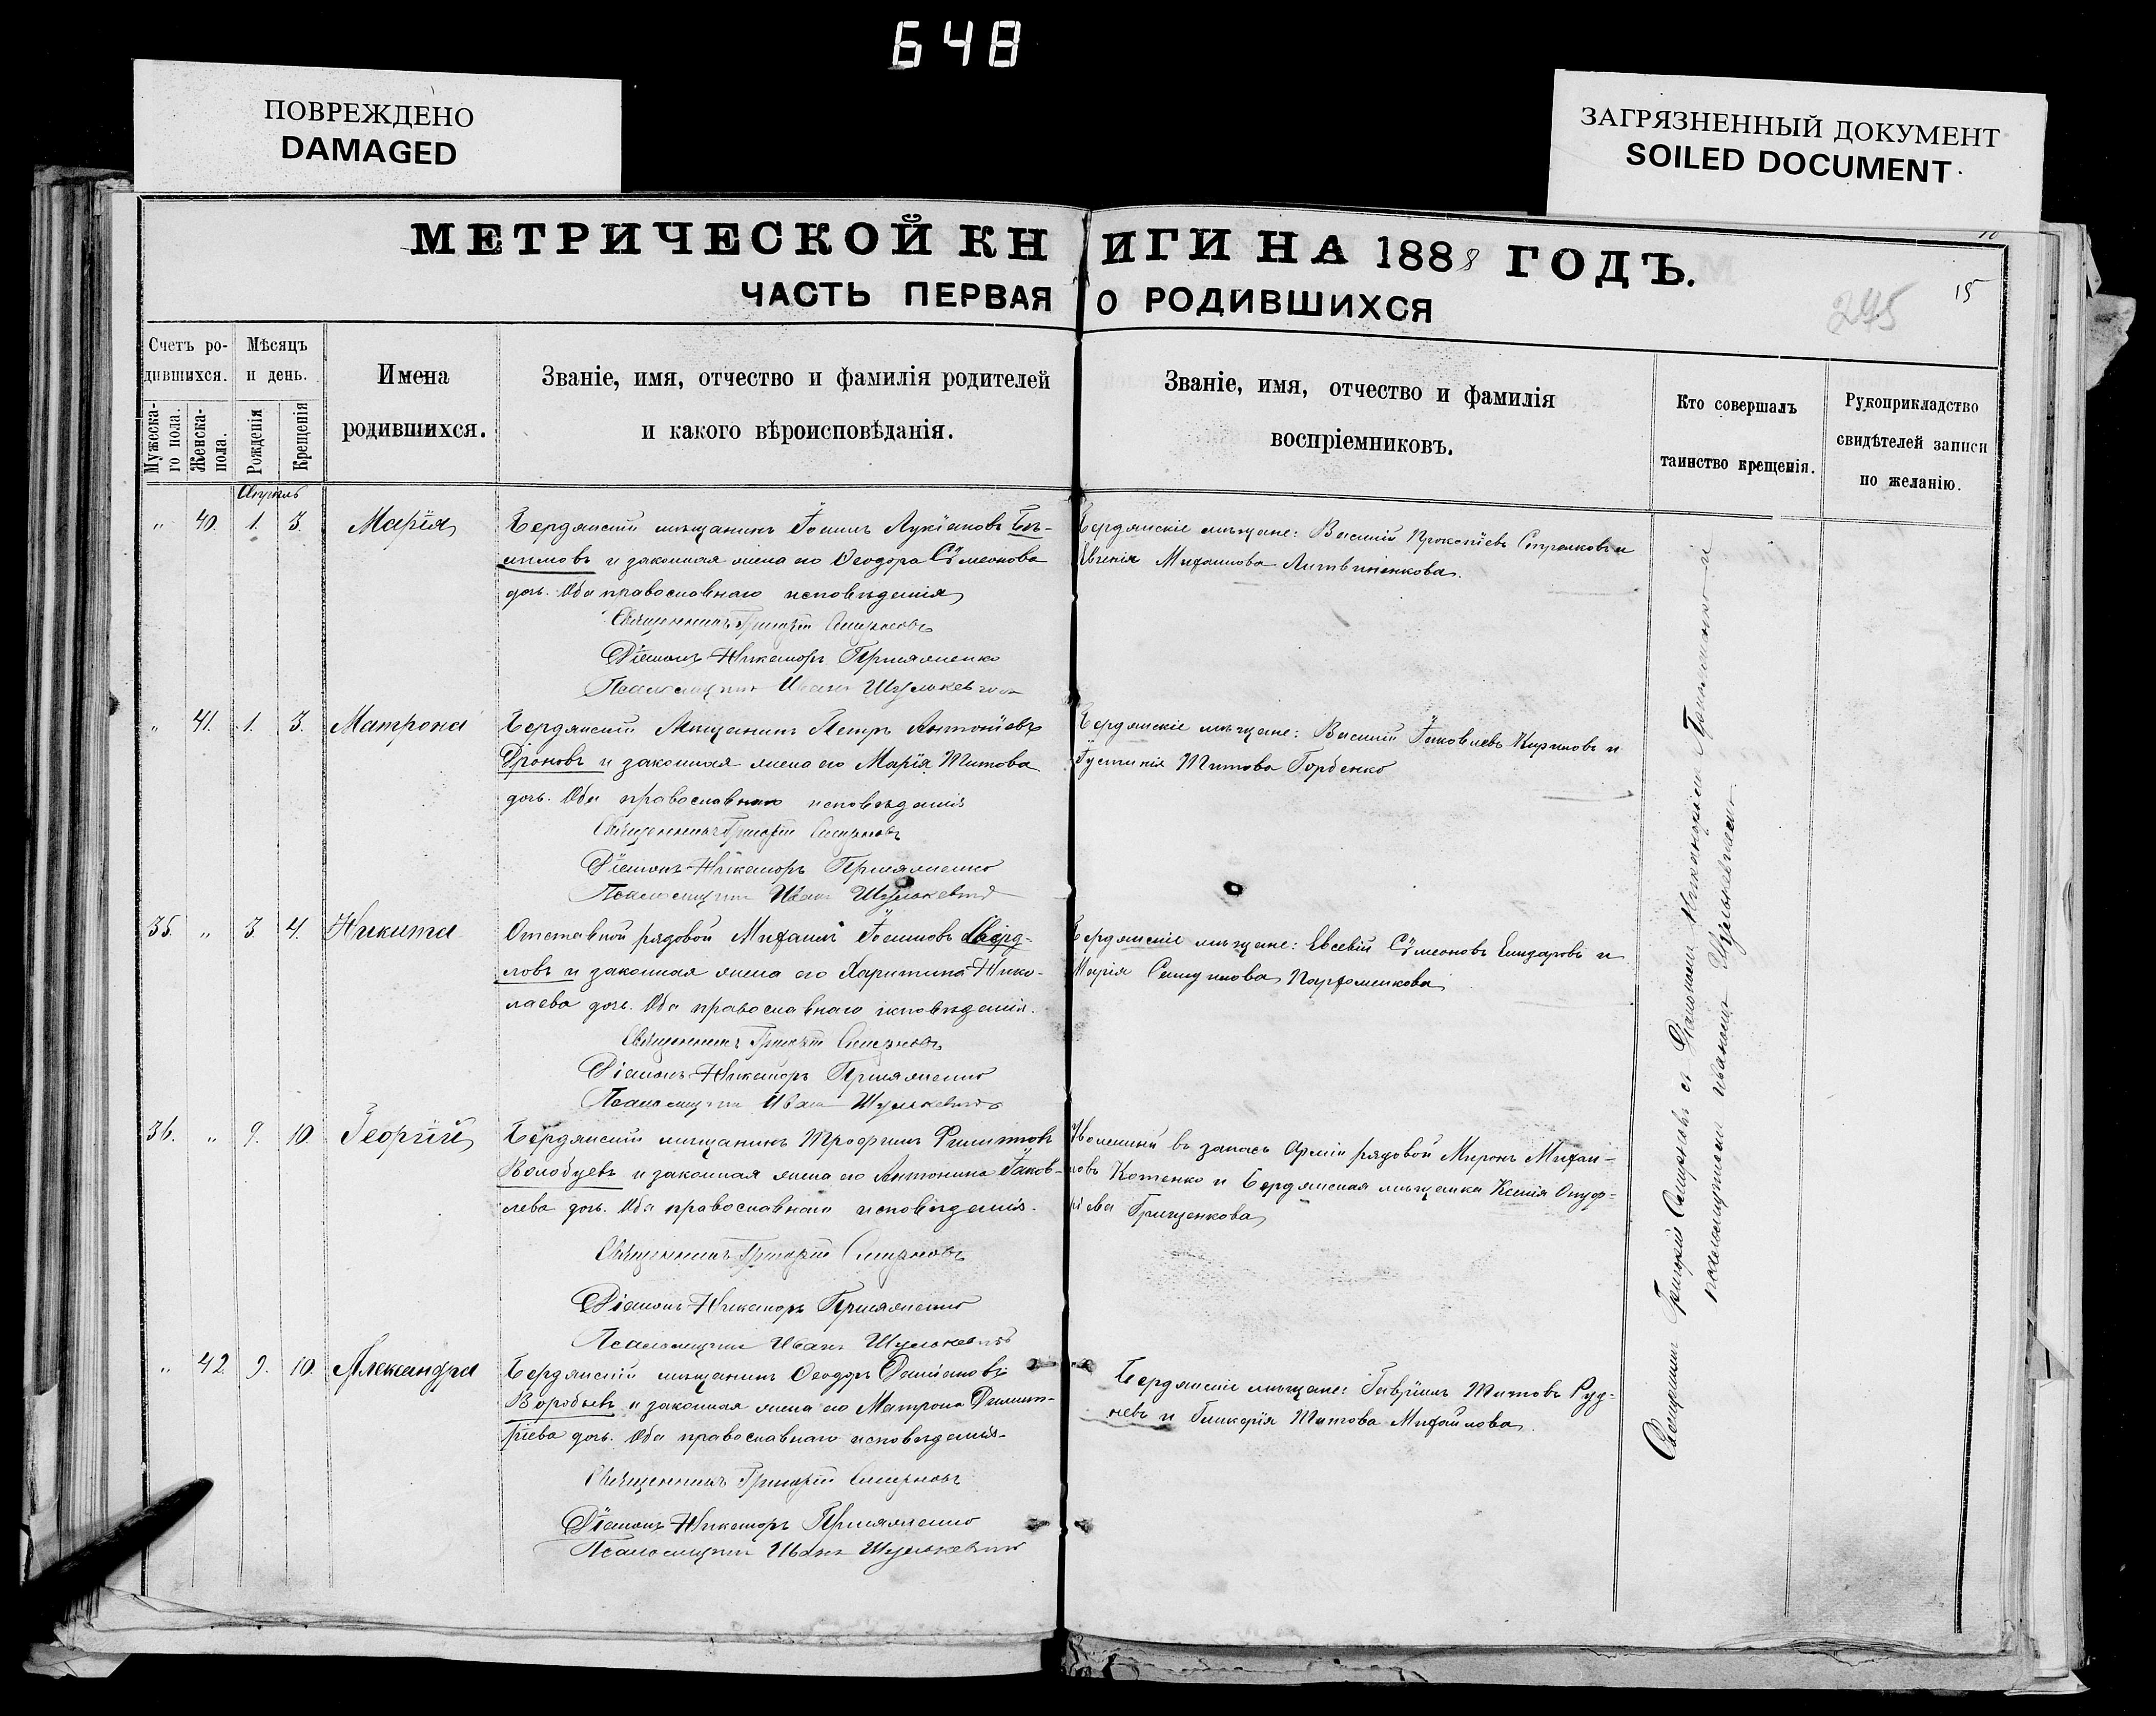 648
ПОВРЕЖДЕНО
DAMAGED
ЗАГРЯЗНЕННЫЙ ДОКУМЕНТ
SOILED DOCUMENT
МЕТРИЧЕСКОЙ КНИГИ НА 1888 ГОДЪ.
ЧАСТЬ ПЕРВАЯ О РОДИВШИХСЯ
245
15
Счетъ родившихся.
Мѣсяцъ и день.
Мужескаго пола.
Женска- пола.
Рожденія
Крещенія
Имена родившихся.
Званіе, имя, отчество и фамилія родителей
и какого вѣроисповѣданія.
Званіе, имя, отчество и фамилія
воспріемниковъ.
Кто совершалъ
таинство крещенія.
Рукоприкладство
свидѣтелей записи
по желанію.
Апрель
" 40. 1. 3. Марія
Бердянскій мѣщанинъ Іоаннъ Лукіановъ
и законная жена его Ѳеодора Сѵмеонова
дочь. Оба православнаго исповѣданія
Священникъ Григорій Смирновъ
Діаконъ Никаноръ
Псаломщикъ Иванъ Шулькевичъ
Бердянскіе мѣщане: Василій Прокопіевъ Стрелковъ и
Евгенія Михаилова Литвиненкова.
" 41. 1. 3. Матрона
Бердянскій Мѣщанинъ Петръ Антоніевъ
Дроновъ и законная жена его Марія Титова
дочь. Оба православнаго исповѣданія
Священникъ Григорій Смирновъ
Діаконъ Никаноръ
Псаломщикъ Иванъ Шулькевичъ
Бердянскіе мѣщане: Василій Іаковлевъ Кириновъ и
Іустинія Титова Горбенко
35 " 3. 4. Никита
Отставной рядовой Михаилъ Іоанновъ Сверд-
ловъ и законная жена его Харитина Нико-
лаева дочь. Оба православнаго исповѣданія.
Священникъ Григорій Смирновъ
Діаконъ Никаноръ
Псаломщикъ Иванъ Шулькевичъ
Бердянскіе мѣщане: Евсевій Сѵмеоновъ и
Марія Парфоменкова
36. " 9. 10. Георгій
Бердянскій мѣщанинъ Трофимъ Филипповъ
Волобуевъ и законная жена его Антонина Іаков-
лева дочь. Оба православнаго исповѣданія.
Священникъ Григорій Смирновъ
Діаконъ Никаноръ
Псаломщикъ Иванъ Шулькевичъ
въ запасъ Арміи рядовой Миронъ Михаи-
ловъ Котенко и Бердянская мѣщанка Ксенія Онуф-
ріева Грищенкова
" 42. 9. 10. Александра
Бердянскій мѣщанинъ Ѳеодоръ Даміановъ
Воробьевъ и законная жена его Матрона Димит-
ріева дочь. Оба православнаго исповѣданія.
Священникъ Григорій Смирновъ
Діаконъ Никаноръ
Псаломщикъ Иванъ Шулькевичъ
Бердянскіе мѣщане: Гавріилъ Титовъ Руд-
невъ и Гликерія Титова Михайлова.
Священникъ Григорій Смирновъ съ Діакономъ Никаноромъ и
псаломщикомъ Иваномъ Шулькевичемъ.